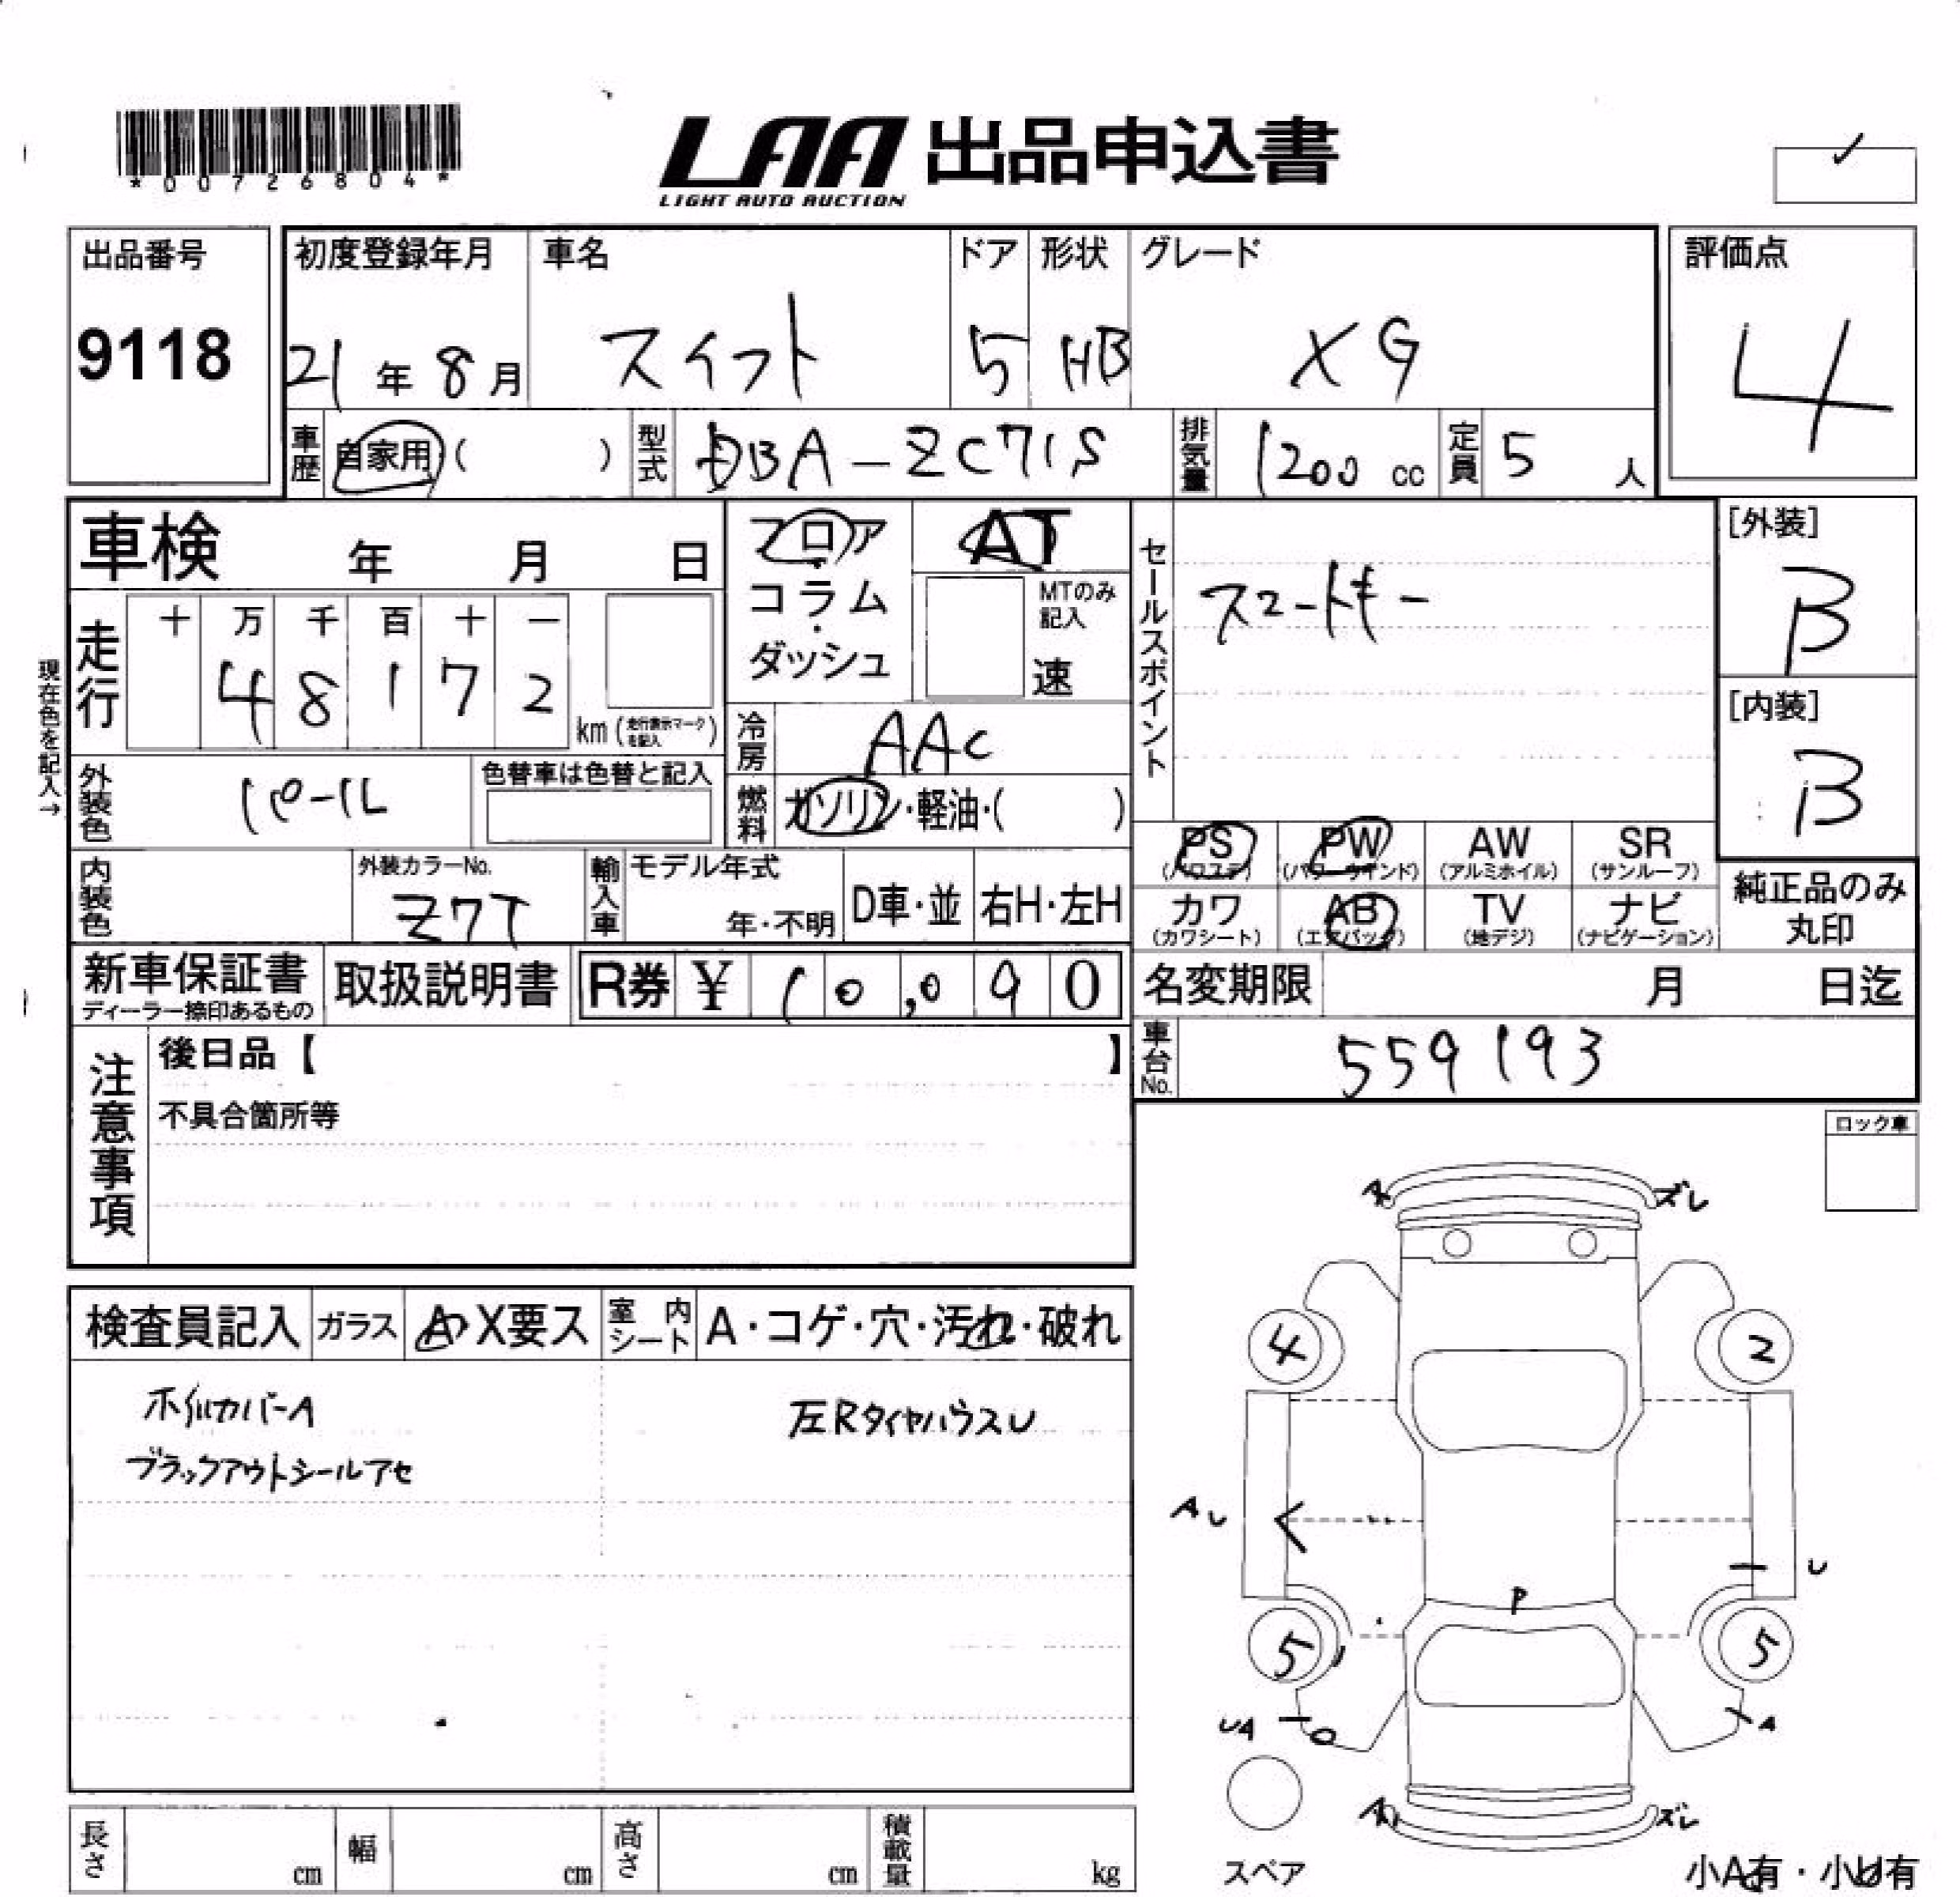 *00726804*
LAA 出品申込書
LIGHT AUTO AUCTION
出品番号
9118
初度登録年月
21年 8月
車名
スイフト
ドア
5
形状
HB
グレード
XG
評価点
4
車歴
自家用( )
型式
DBA-ZC71S
排気量
1200 cc
定員
5 人
車検 年 月 日
フロア・コラム・ダッシュ
AT
MTのみ記入
速
セールスポイント
スマートキー
[外装]
B
[内装]
B
現在色を記入→
走行
十 万 千 百 十 一
4 8 1 7 2
km(走行表示マークを記入)
冷房
AAC
外装色
パール
色替車は色替と記入
燃料
ガソリン・軽油・( )
PS
(パワステ)
PW
(パワーウインド)
AW
(アルミホイル)
SR
(サンルーフ)
カワ
(カワシート)
AB
(エアバッグ)
TV
(地デジ)
ナビ
(ナビゲーション)
純正品のみ
丸印
内装色
外装カラーNo.
Z7T
輸入車
モデル年式
年・不明
D車・並
右H・左H
新車保証書
ディーラー捺印あるもの
取扱説明書
R券 ¥ 10,090
名変期限 月 日迄
車台No.
559193
注意事項
後日品【 】
不具合箇所等
ロック車
検査員記入
ガラス
A・X要ス
室内シート
A・コゲ・穴・汚れ・破れ
ホイルカバーA
左RタイヤハウスU
ブラックアウトシールアセ
ズレ
4
2
A U
U
P
5
5
UA
A
ズレ
スペア
小A有・小U有
長さ cm
幅 cm
高さ cm
積載量 kg